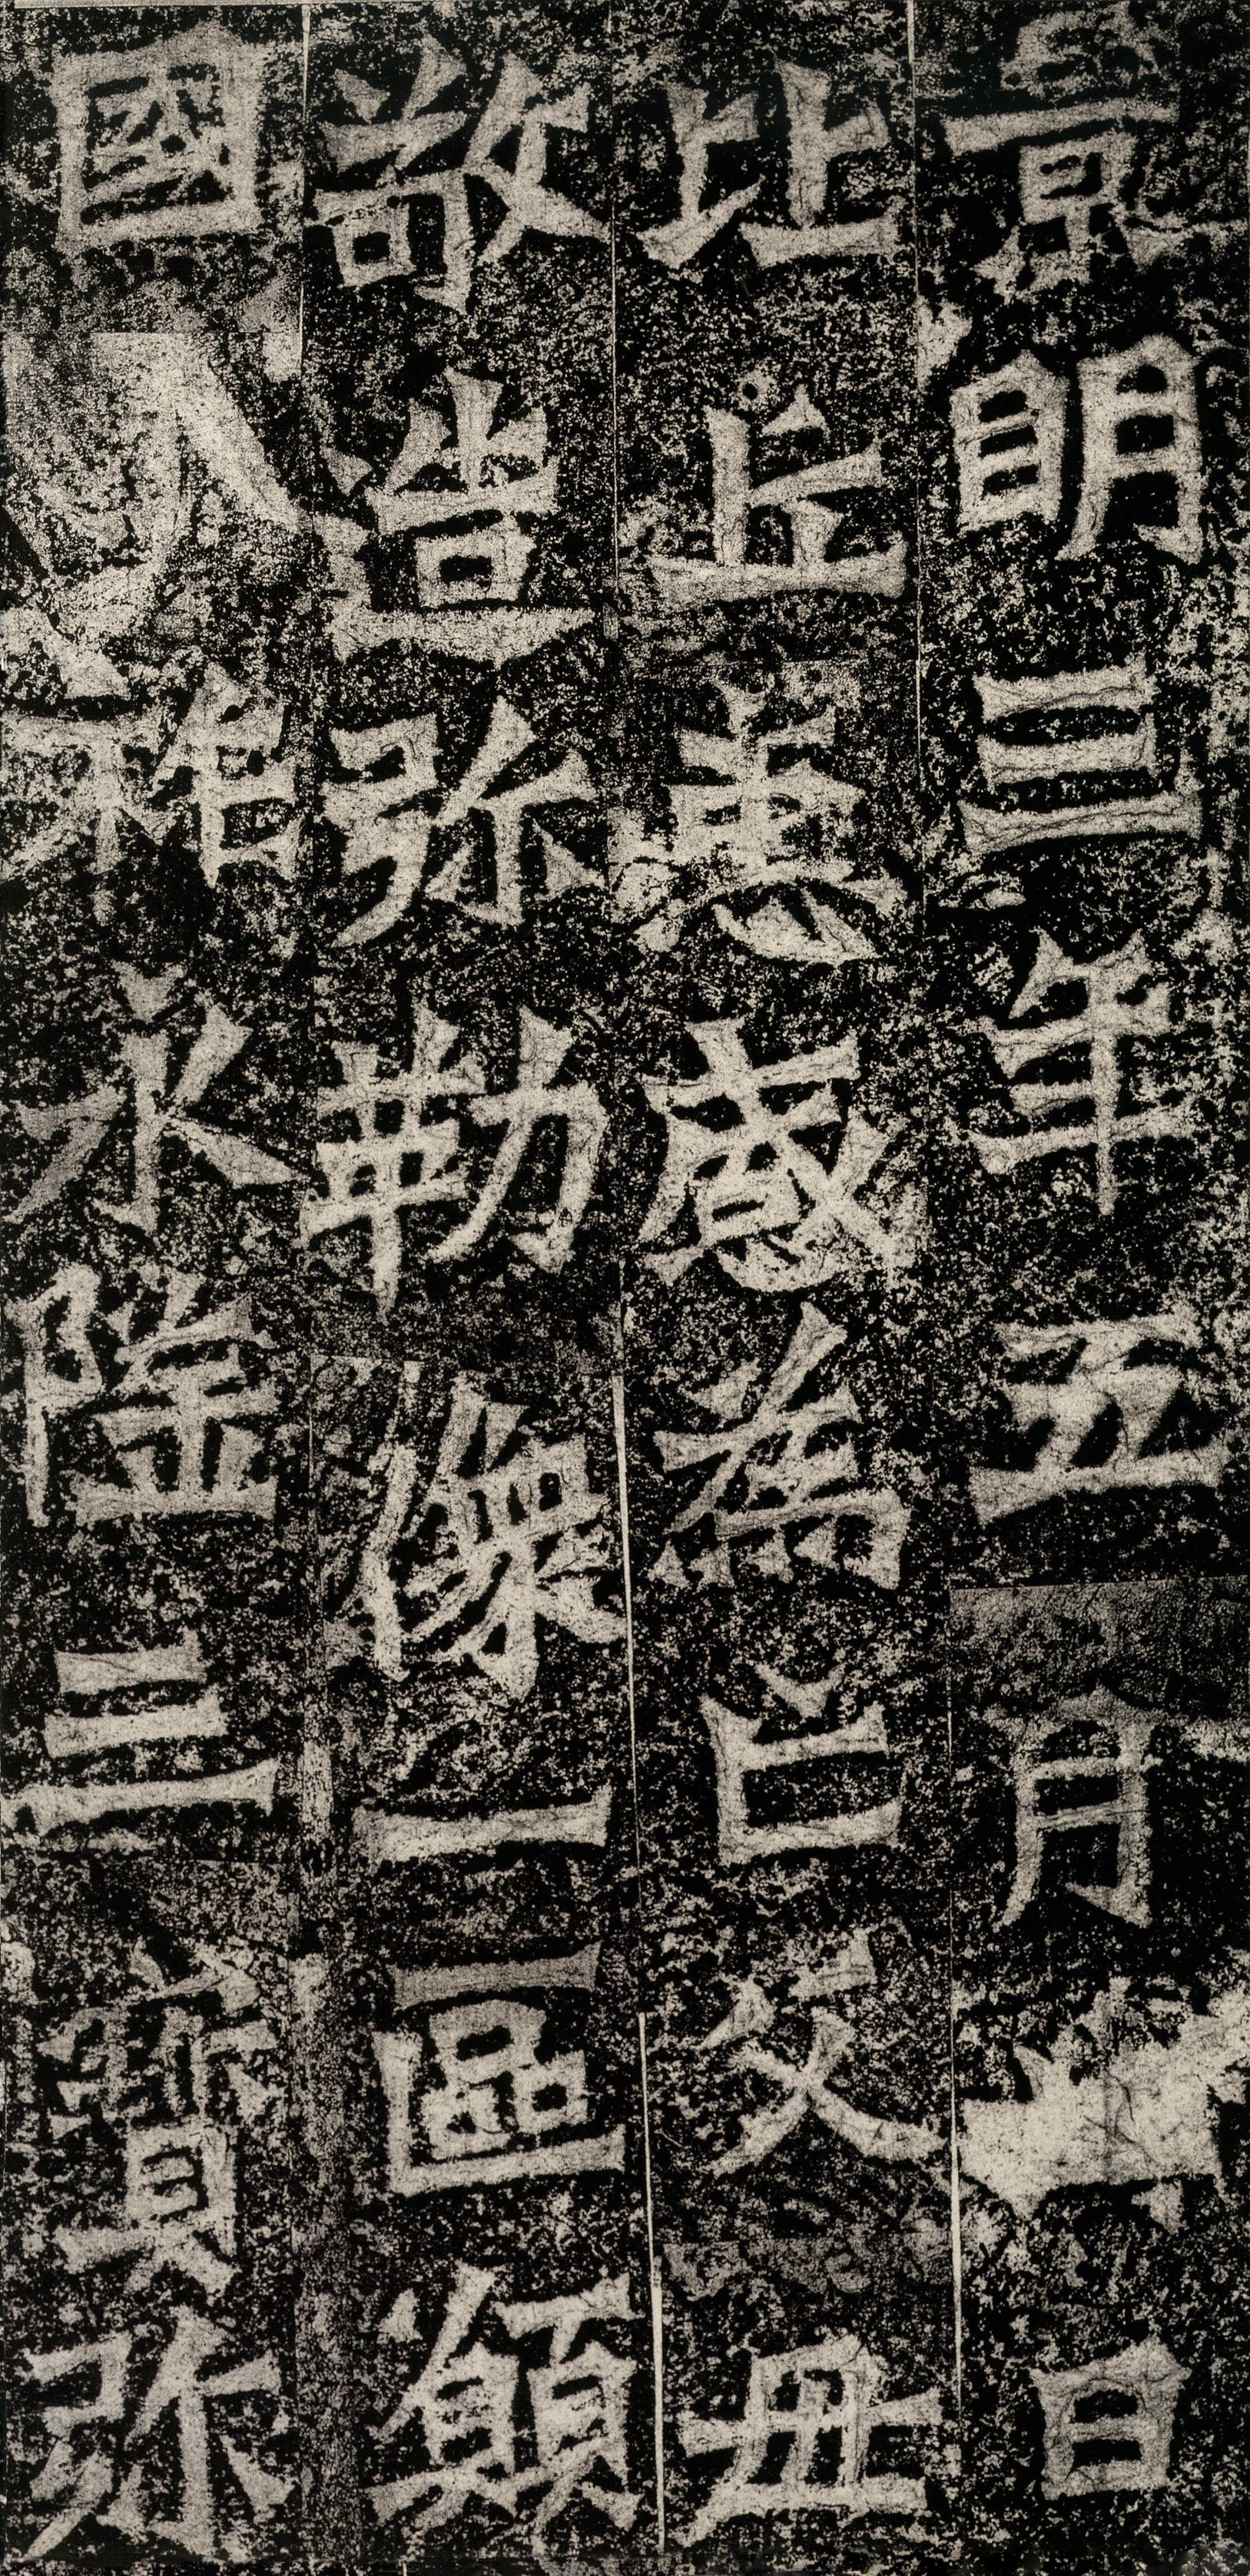 景明三年五月卅日
比丘惠感為亡父母
敬造弥勒像一區願
國祚永隆三寶弥